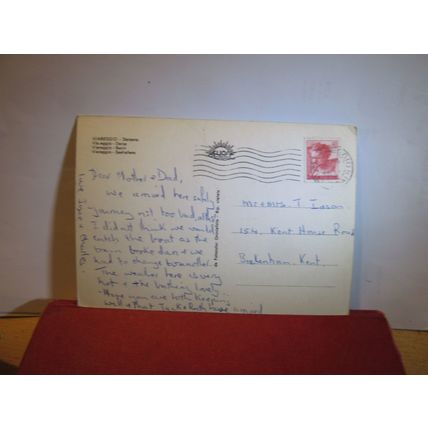 VIAREGGIO - Darsena
Viareggio - Darse
Viareggio - Basin
Viareggio - Seehafen
Dear Mother & Dad,
we arrived here safely
journey not too bad, altho
I didn't think we would
catch the boat as the
train broke down & we
had to change to another.
The weather here is very
hot & the bathing lovely
Hope you are both keeping
well & that Jack & Ruth have arrived
Mr & Mrs T
154, Kent House Road
Beckenham, Kent.